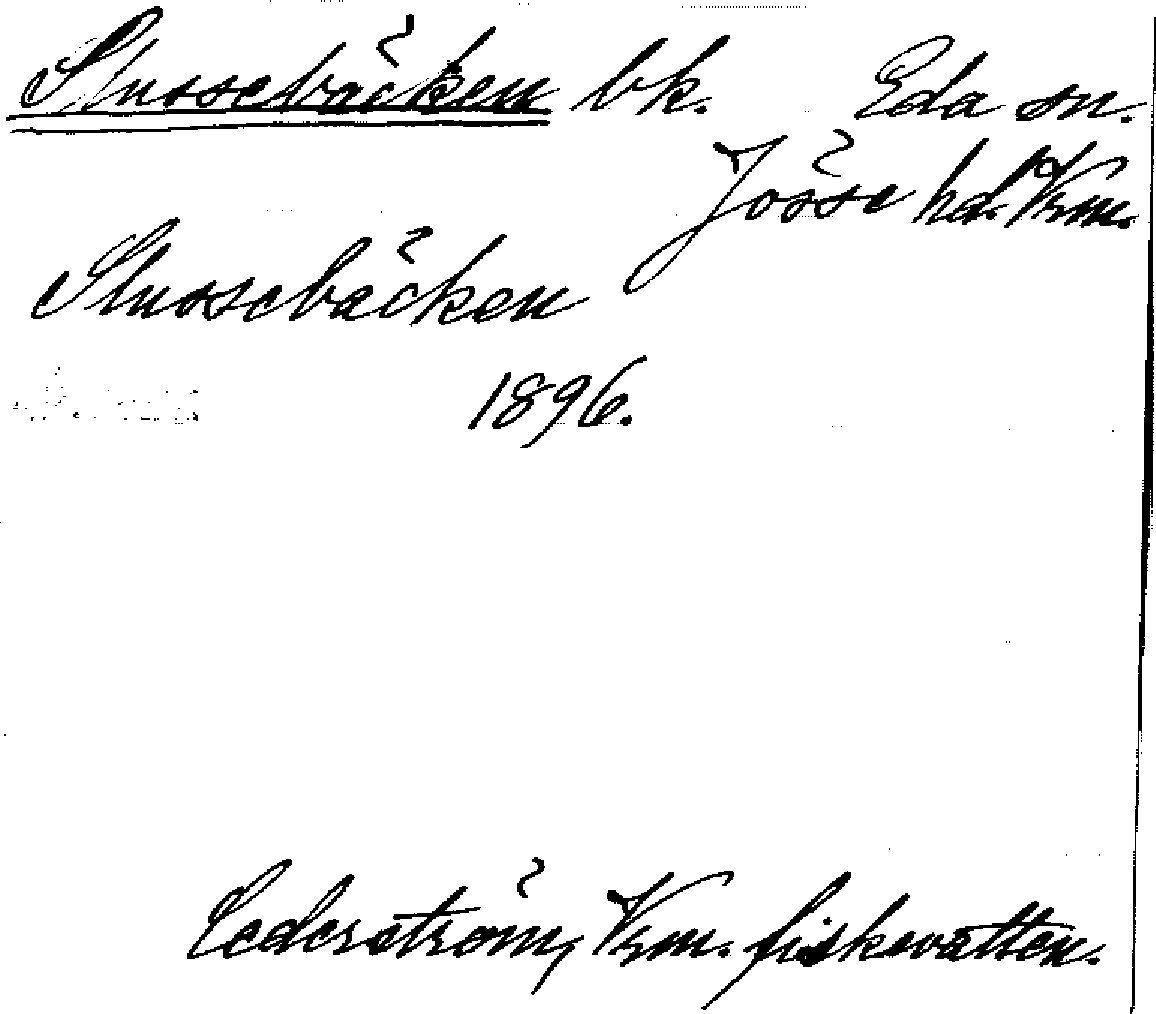 Slussebäcken bk. Eda sn.
Jösse hd. Vrm.
Slussebäcken
1896.
Cederström, Vrm. fiskevatten.